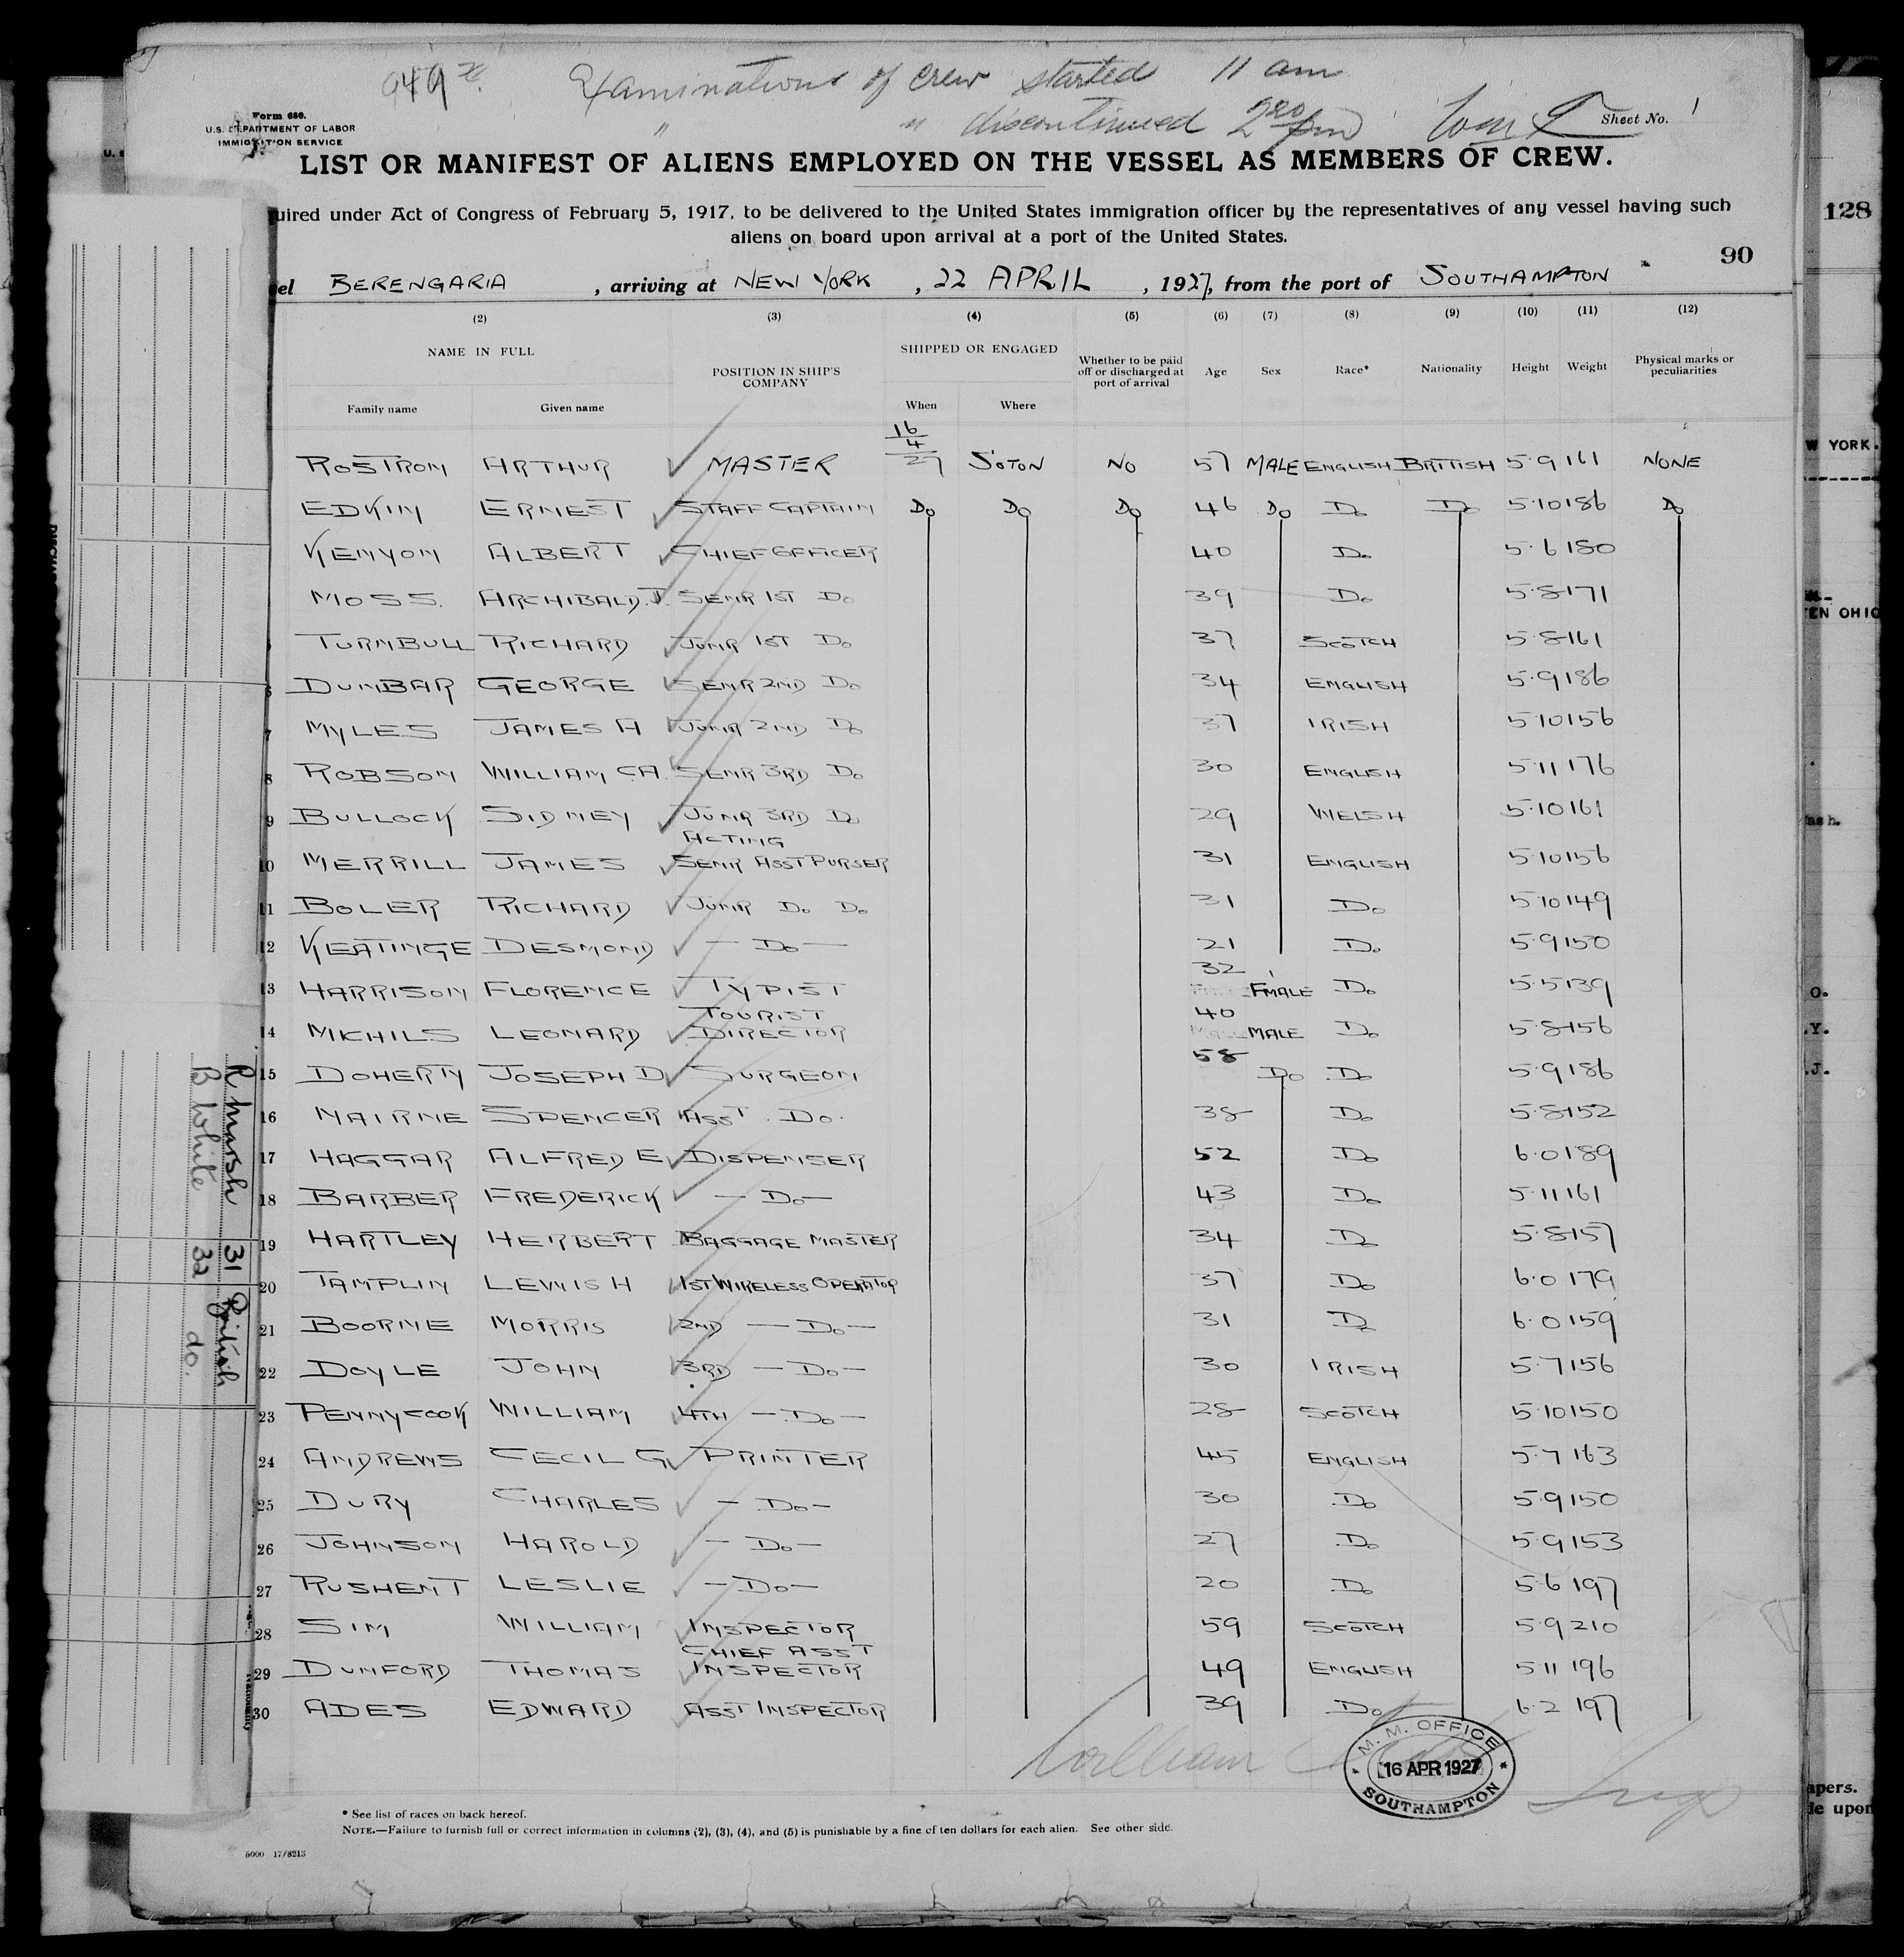 Examinations of crew started 11 am
" " discontinued 2 20 pm
Form 680.
U. S. DEPARTMENT OF LABOR
IMMIGRATION SERVICE
Sheet No. 1
LIST OR MANIFEST OF ALIENS EMPLOYED ON THE VESSEL AS MEMBERS OF CREW.
uired under Act of Congress of February 5, 1917, to be delivered to the United States immigration officer by the representatives of any vessel having such
aliens on board upon arrival at a port of the United States.
128
90
el BERENGARIA , arriving at NEW YORK , 22 APRIL , 1927, from the port of SOUTHAMPTON
(2) (3) (4) (5) (6) (7) (8) (9) (10) (11) (12)
NAME IN FULL
Family name Given name
POSITION IN SHIP'S COMPANY
SHIPPED OR ENGAGED
When Where
Whether to be paid off or discharged at port of arrival
Age Sex Race* Nationality Height Weight
Physical marks or peculiarities
ROSTRON ARTHUR MASTER 16/4/27 S'OTON NO 57 MALE ENGLISH BRITISH 5·9 161 NONE
EDKIN ERNEST STAFF CAPTAIN Do Do Do 46 Do Do Do 5·10 186 Do
KENYON ALBERT CHIEF OFFICER 40 Do 5·6 180
MOSS. ARCHIBALD.J. SENR 1ST Do 39 Do 5·8 171
TURNBULL RICHARD JUNR 1ST Do 37 SCOTCH 5·8 161
6 DUNBAR GEORGE SENR 2ND Do 34 ENGLISH 5·9 186
7 MYLES JAMES A JUNR 2ND Do 37 IRISH 5·10 156
8 ROBSON WILLIAM C.A. SENR 3RD Do 30 ENGLISH 5·11 176
9 BULLOCK SIDNEY JUNR 3RD Do 29 WELSH 5·10 161
10 MERRILL JAMES ACTING SENR ASST PURSER 31 ENGLISH 5·10 156
11 BOLER RICHARD JUNR Do Do 31 Do 5·10 149
12 KEATINGE DESMOND — Do — 21 Do 5·9 150
13 HARRISON FLORENCE TYPIST 32 FMALE Do 5·5 139
14 MICHILS LEONARD TOURIST DIRECTOR 40 MALE Do 5·8 156
15 DOHERTY JOSEPH D SURGEON 58 Do Do 5·9 186
16 NAIRNE SPENCER ASST. Do. 38 Do 5·8 152
17 HAGGAR ALFRED E DISPENSER 52 Do 6·0 189
18 BARBER FREDERICK — Do — 43 Do 5·11 161
19 HARTLEY HERBERT BAGGAGE MASTER 34 Do 5·8 157
20 TAMPLIN LEWIS H 1ST WIRELESS OPERATOR 37 Do 6·0 179
21 BOORNE MORRIS 2ND — Do — 31 Do 6·0 159
22 DOYLE JOHN 3RD — Do — 30 IRISH 5·7 156
23 PENNYCOOK WILLIAM 4TH — Do — 28 SCOTCH 5·10 150
24 ANDREWS CECIL G PRINTER 45 ENGLISH 5·7 163
25 DURY CHARLES — Do — 30 Do 5·9 150
26 JOHNSON HAROLD — Do — 27 Do 5·9 153
27 RUSHENT LESLIE — Do — 20 Do 5·6 197
28 SIM WILLIAM INSPECTOR 59 SCOTCH 5·9 210
29 DUNFORD THOMAS CHIEF ASST INSPECTOR 49 ENGLISH 5·11 196
30 ADES EDWARD ASST INSPECTOR 39 Do 6·2 197
R Marsh 31 British
B White 32 do.
William
M. M. OFFICE
16 APR 1927
SOUTHAMPTON
* See list of races on back hereof.
NOTE.—Failure to furnish full or correct information in columns (2), (3), (4), and (5) is punishable by a fine of ten dollars for each alien. See other side.
5000 17/8213
W YORK.
EN OHIO
ash.
O.
.Y.
.J.
apers.
le upon